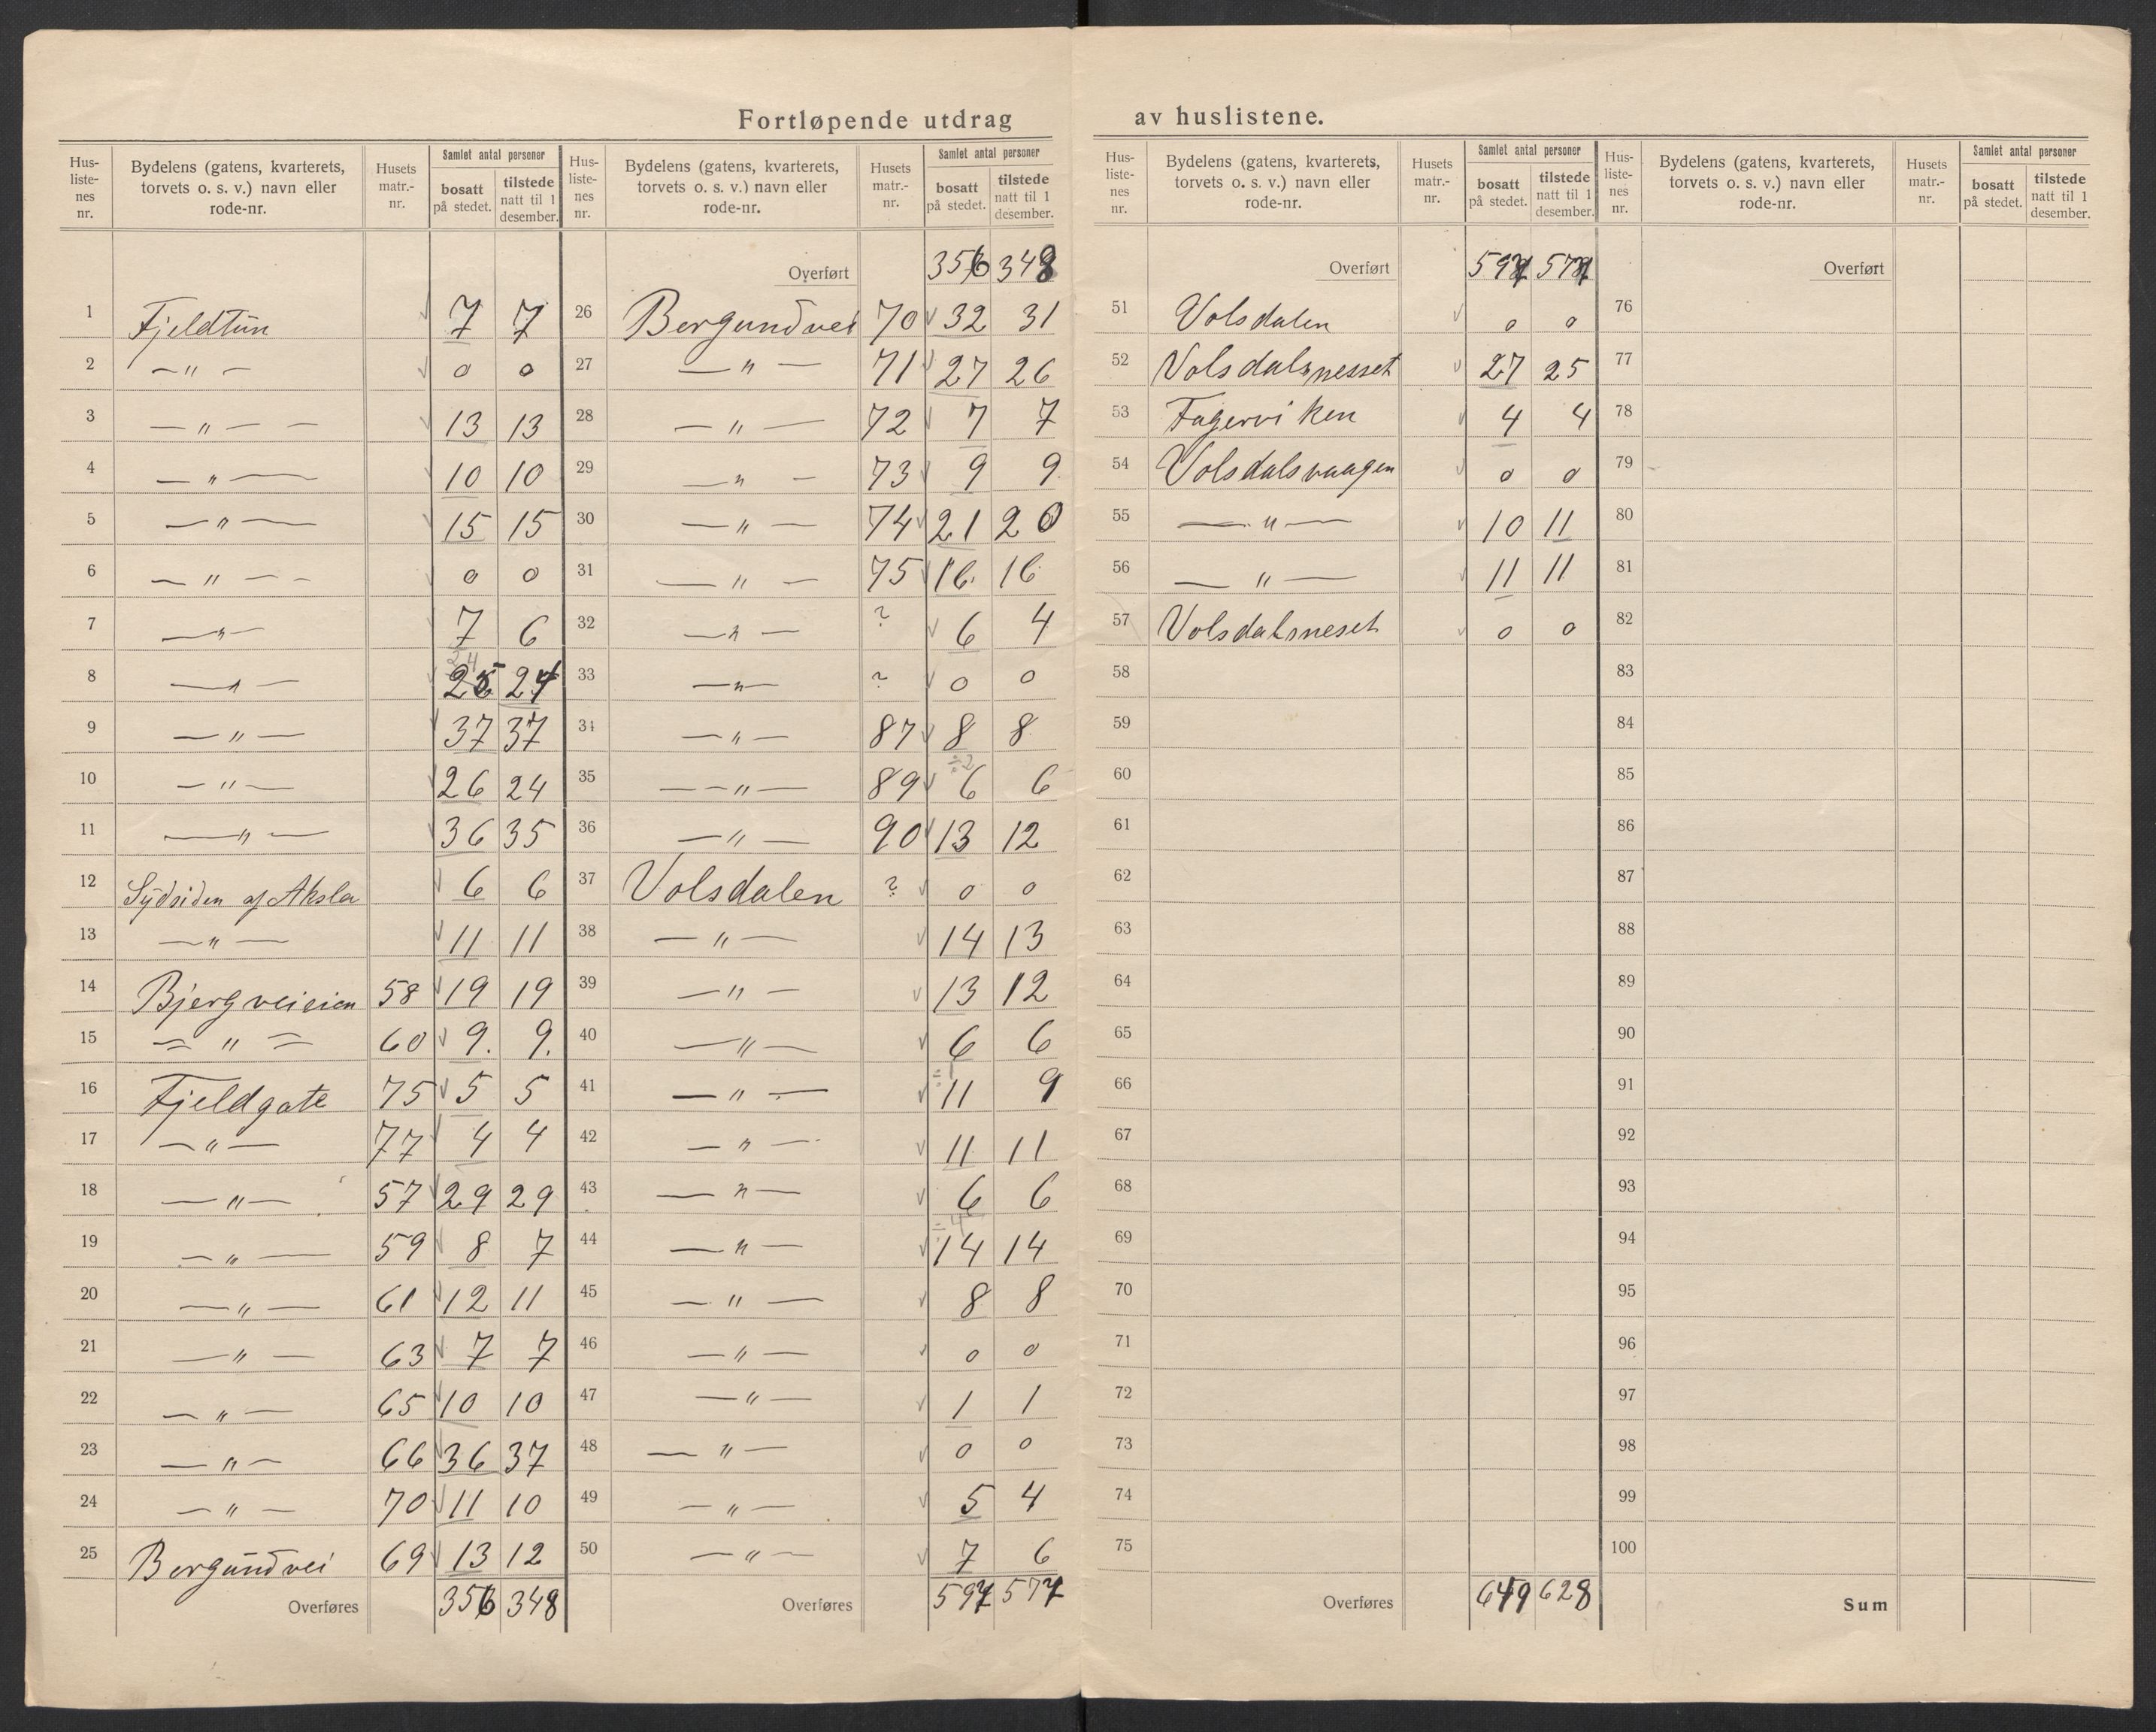 Fortløpende utdrag av huslistene.
Hus-listenes nr. Bydelens (gatens, kvarterets, torvets o. s. v.) navn eller rode-nr. Husets matr.-nr. Samlet antal personer bosatt på stedet. tilstede natt til 1 desember.
1 Fjeldtün 7 7
2 — " — 0 0
3 — " — — 13 13
4 — " — 10 10
5 — " — 15 15
6 — " — — 0 0
7 — " — 7 6
8 — " — 25 24
9 — " — 37 37
10 — " — 26 24
11 — " — 36 35
12 Sydsiden af Aksla 6 6
13 — " — 11 11
14 Bjergveieien 58 19 19
15 — " — 60 9. 9.
16 Fjeldgate 75 5 5
17 — " — 77 4 4
18 — " — 57 29 29
19 — " — 59 8 7
20 — " — 61 12 11
21 — " — 63 7 7
22 — " — 65 10 10
23 — " — 66 36 37
24 — " — 70 11 10
25 Borgundvei 69 13 12
Overføres 356 348
Hus-listenes nr. Bydelens (gatens, kvarterets, torvets o. s. v.) navn eller rode-nr. Husets matr.-nr. Samlet antal personer bosatt på stedet. tilstede natt til 1 desember.
Overført 356 348
26 Borgundvei 70 32 31
27 — " — 71 27 26
28 — " — 72 7 7
29 — " — 73 9 9
30 — " — 74 21 20
31 — " — 75 16 16
32 — " — ? 6 4
33 — " — ? 0 0
34 — " — 87 8 8
35 — — " — 89 6 6
36 — " — 90 13 12
37 Volsdalen ? 0 0
38 — " — 14 13
39 — " — 13 12
40 — " — 6 6
41 — " — 11 9
42 — " — 11 11
43 — " — 6 6
44 — " — 14 14
45 — " — 8 8
46 — " — 0 0
47 — " — 1 1
48 — " — 0 0
49 — " — 5 4
50 — " — 7 6
Overføres 597 577
Hus-listenes nr. Bydelens (gatens, kvarterets, torvets o. s. v.) navn eller rode-nr. Husets matr.-nr. Samlet antal personer bosatt på stedet. tilstede natt til 1 desember.
Overført 597 577
51 Volsdalen 0 0
52 Volsdalsnesset 27 25
53 Fagerviken 4 4
54 Volsdalsvaagen 0 0
55 — " — 10 11
56 — " — 11 11
57 Volsdalsneset 0 0
58
59
60
61
62
63
64
65
66
67
68
69
70
71
72
73
74
75
Overføres 649 628
Hus-listenes nr. Bydelens (gatens, kvarterets, torvets o. s. v.) navn eller rode-nr. Husets matr.-nr. Samlet antal personer bosatt på stedet. tilstede natt til 1 desember.
Overført
76
77
78
79
80
81
82
83
84
85
86
87
88
89
90
91
92
93
94
95
96
97
98
99
100
Sum